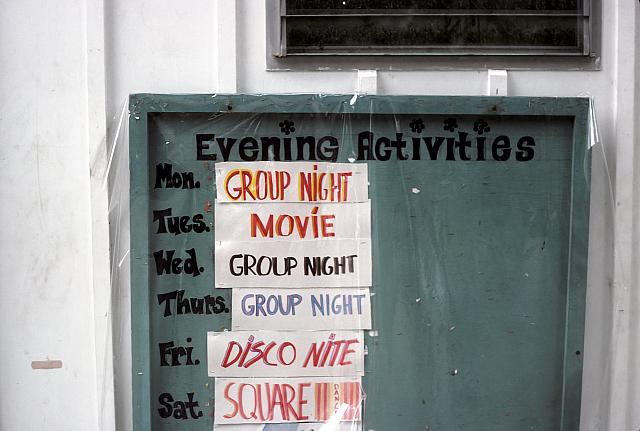 Evening Activities
Mon. GROUP NiGHT
Tues. MOVíE
Wed. GROUP NIGHT
Thurs. GROUP NIGHT
Fri. DiSCO NiTE
Sat. SQUARE DANCE!!!